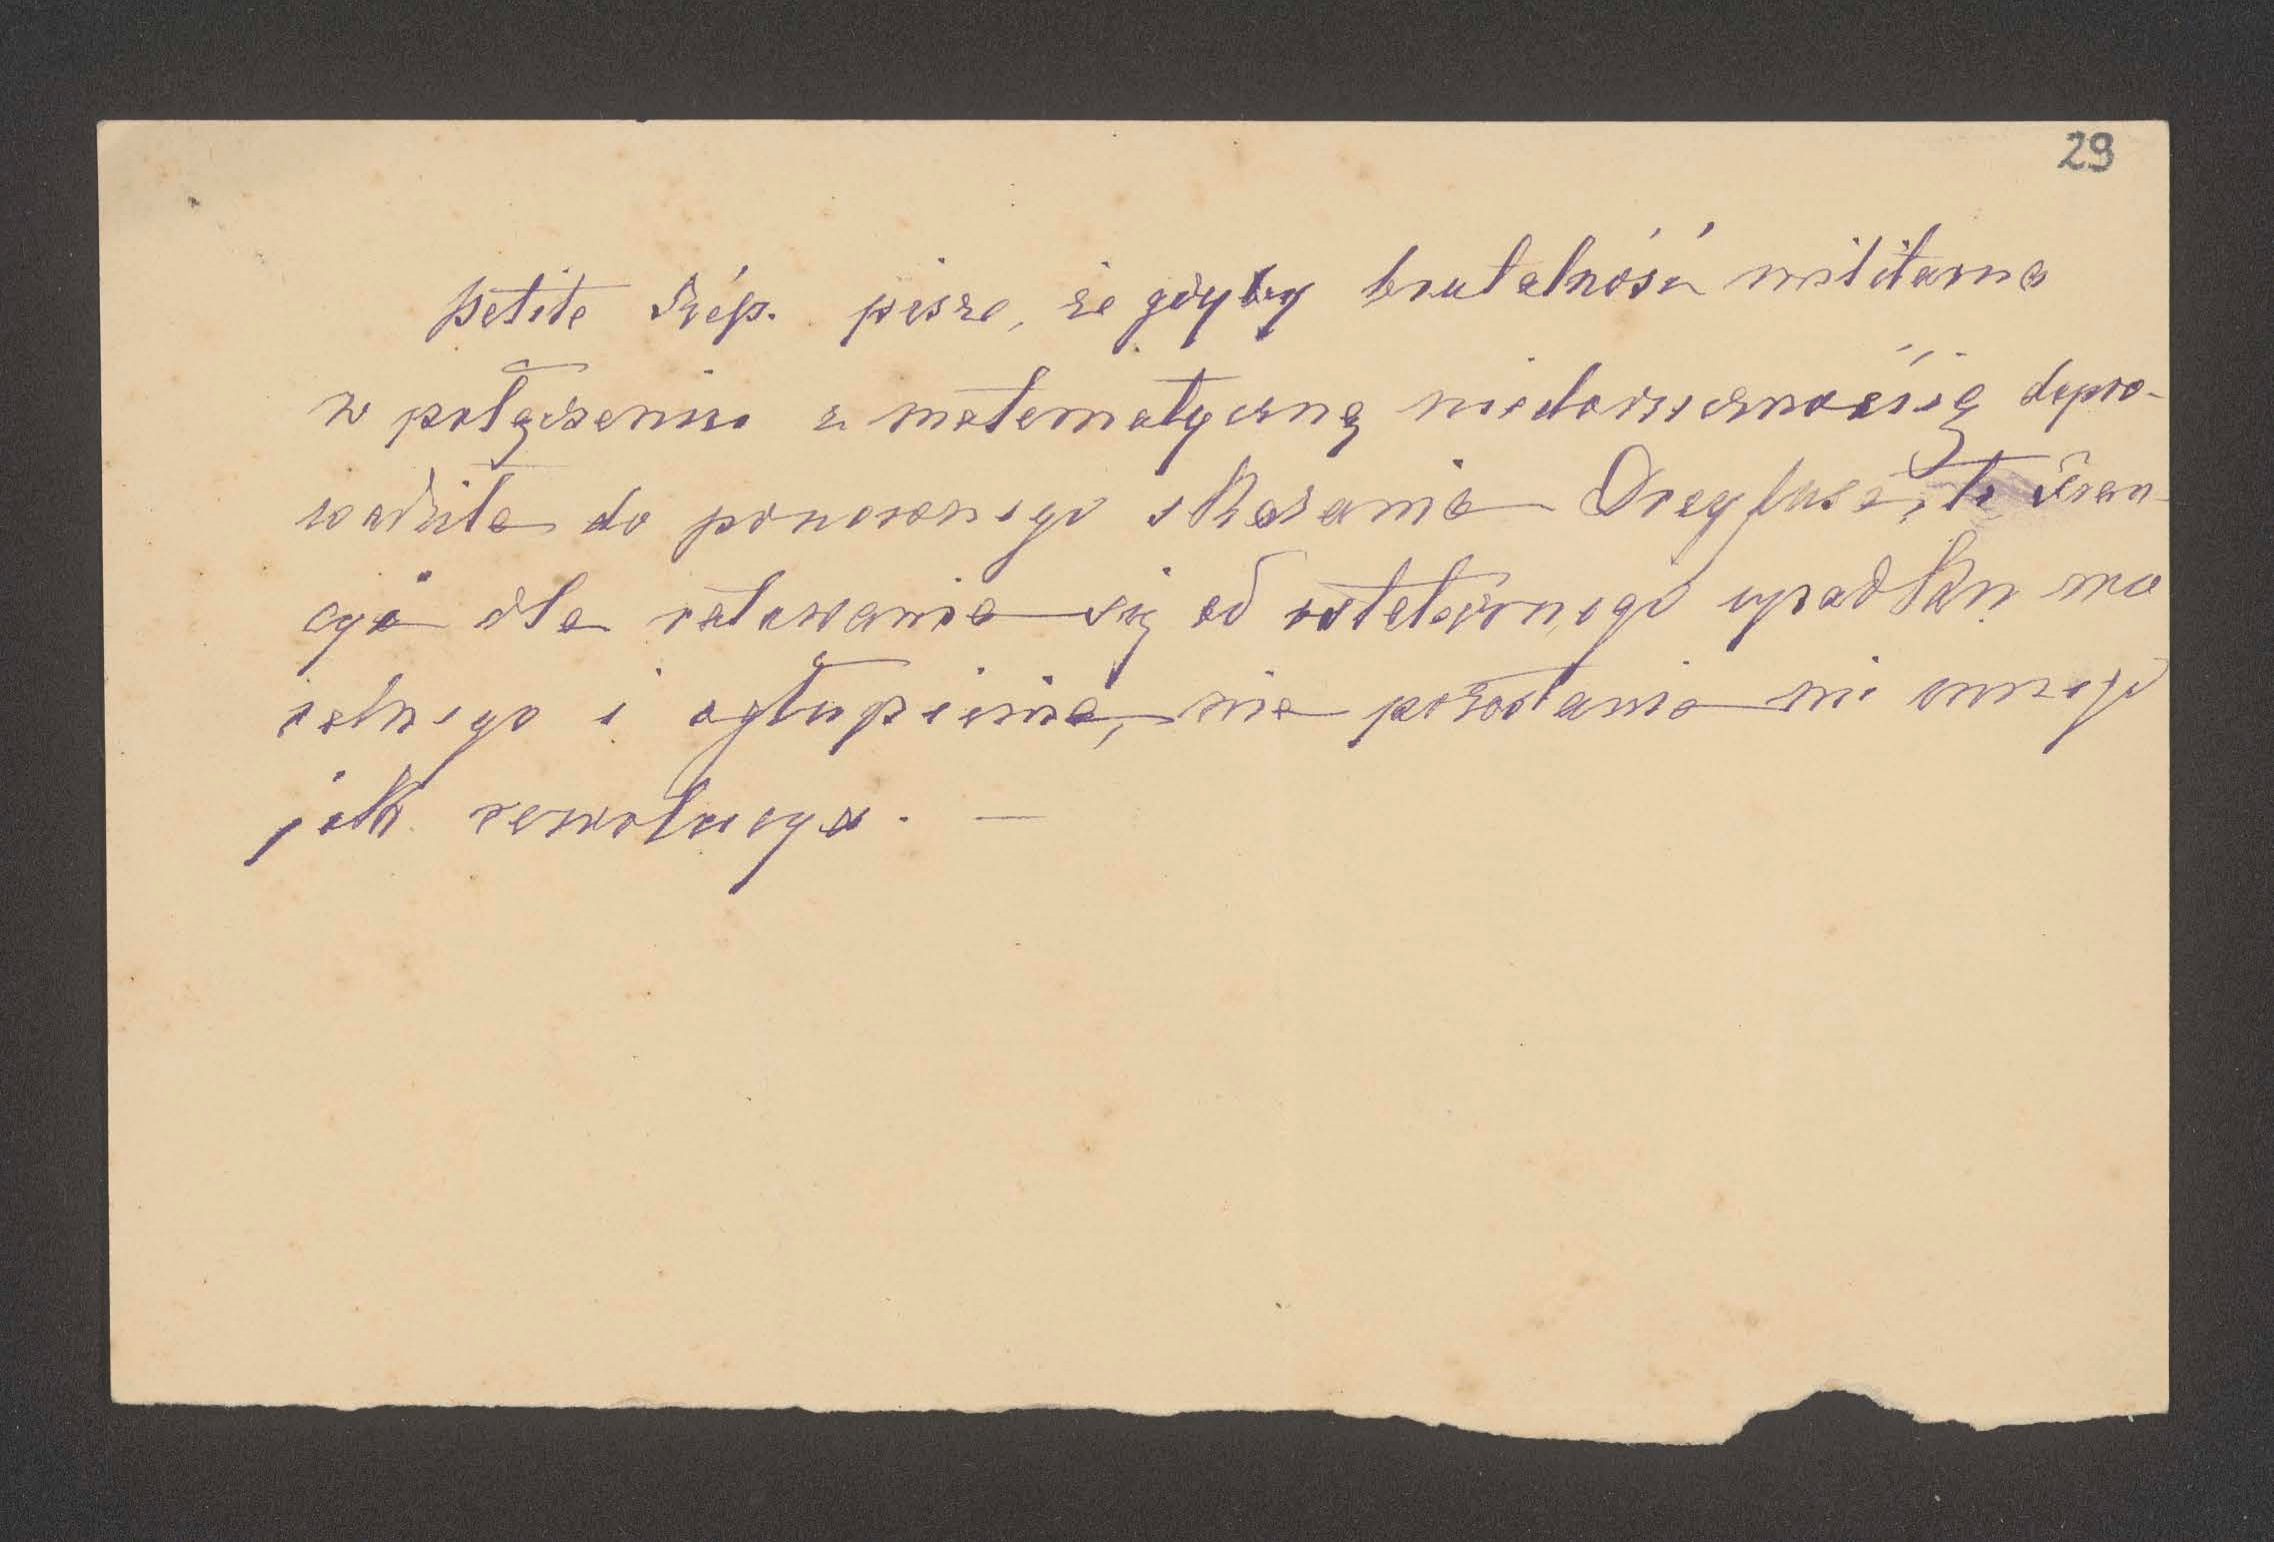 29
Petite Rép. pisze, że gdyby brutalność militarna
w połączeniu z matematyczną niedorzecznością dopro-
wadziła do ponownego skazania Dreyfusa, to Fran-
cyi dla ratowania się od ostatecznego upadku mo
ralnego i ogłupienia, nie pozostanie nic innego
jak rewolucya. —